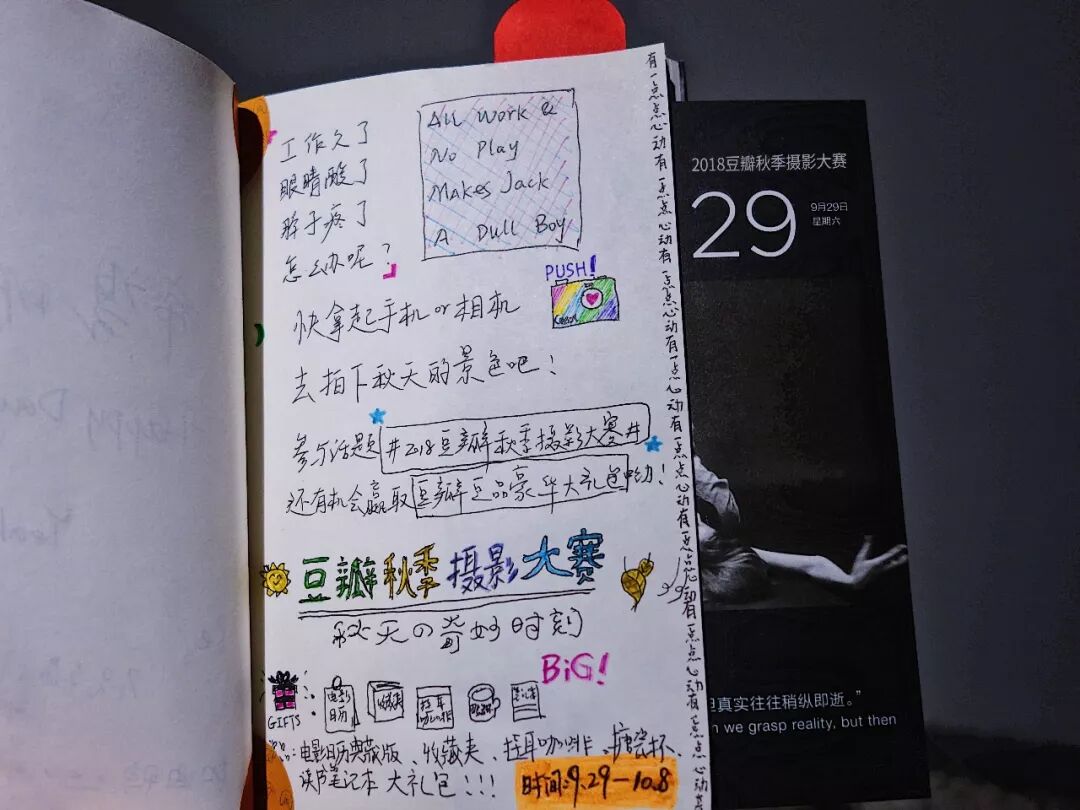 工作久了
眼睛酸了
脖子疼了
怎么办呢？
All Work &
No Play
Makes Jack
A Dull Boy
PUSH!
快拿起手机or相机
去拍下秋天的景色吧！
参与话题#2018豆瓣秋季摄影大赛#
还有机会赢取豆瓣豆品豪华大礼包哟！
豆瓣秋季摄影大赛
秋天の奇妙时刻
BiG!
GIFTS
电影日历
收藏夹
挂耳咖啡
奖品：电影日历典藏版、收藏夹、挂耳咖啡、搪瓷杯、
读书笔记本 大礼包！！！
时间:9.29—10.8
有一点点心动有一点点心动有一点点心动有一点点心动有一点点心动有一点点心动有一点点心动
2018豆瓣秋季摄影大赛
29
9月29日
星期六
真实往往稍纵即逝。”
we grasp reality, but then